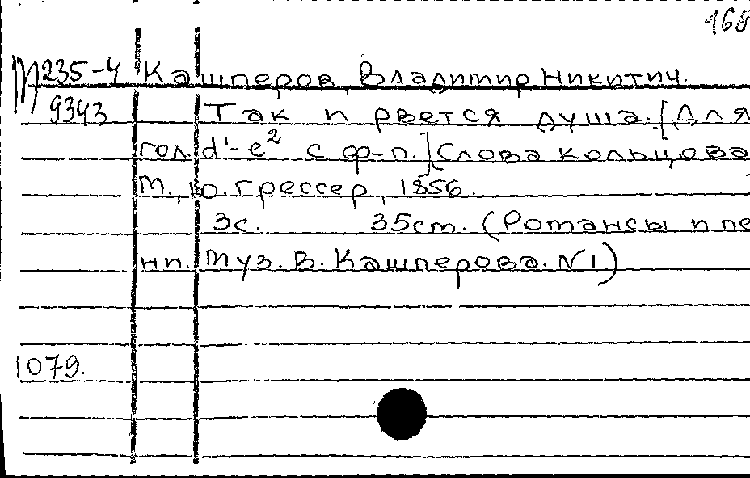 168
М 235-4 Кашперов, Владимир Никитич.
9343 Так и рвется душа. [Для
гол. d'-e² с ф-п.] Слова Кольцова
М., Ю. Грессер, 1856.
3с. 35cm. (Романсы и пе
ни. Муз. В. Кашперова. №1)
1079.